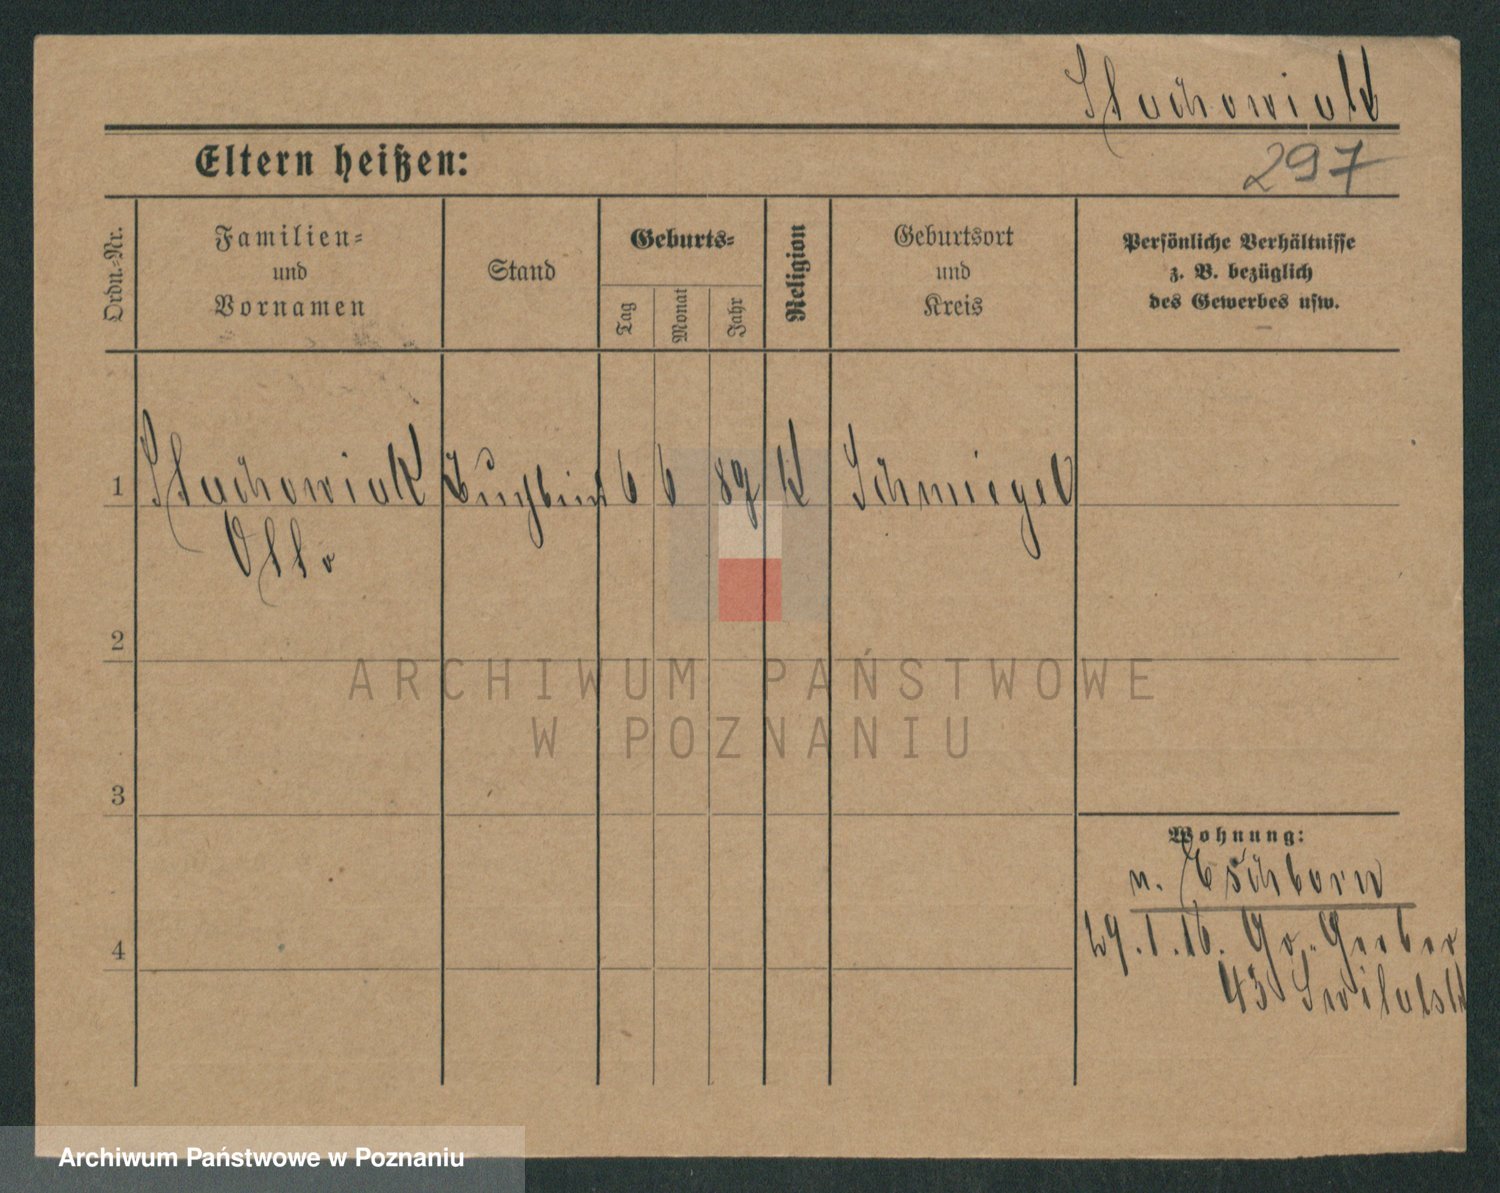 Stachowiak
Eltern heißen:
297
Ordn.-Nr.
Familien-
und
Vornamen
Stand
Geburts-
Tag
Monat
Jahr
Religion
Geburtsort
und
Kreis
Persönliche Verhältnisse
z. B. bezüglich
des Gewerbes usw.
1 Stachowiak 6 6 89 k Schmiegel
Otto
2
ARCHIWUM PAŃSTWOWE
W POZNANIU
3
Wohnung:
n. Eschborn
4
29.1.16. Gr. Gerber
43
Archiwum Państwowe w Poznaniu